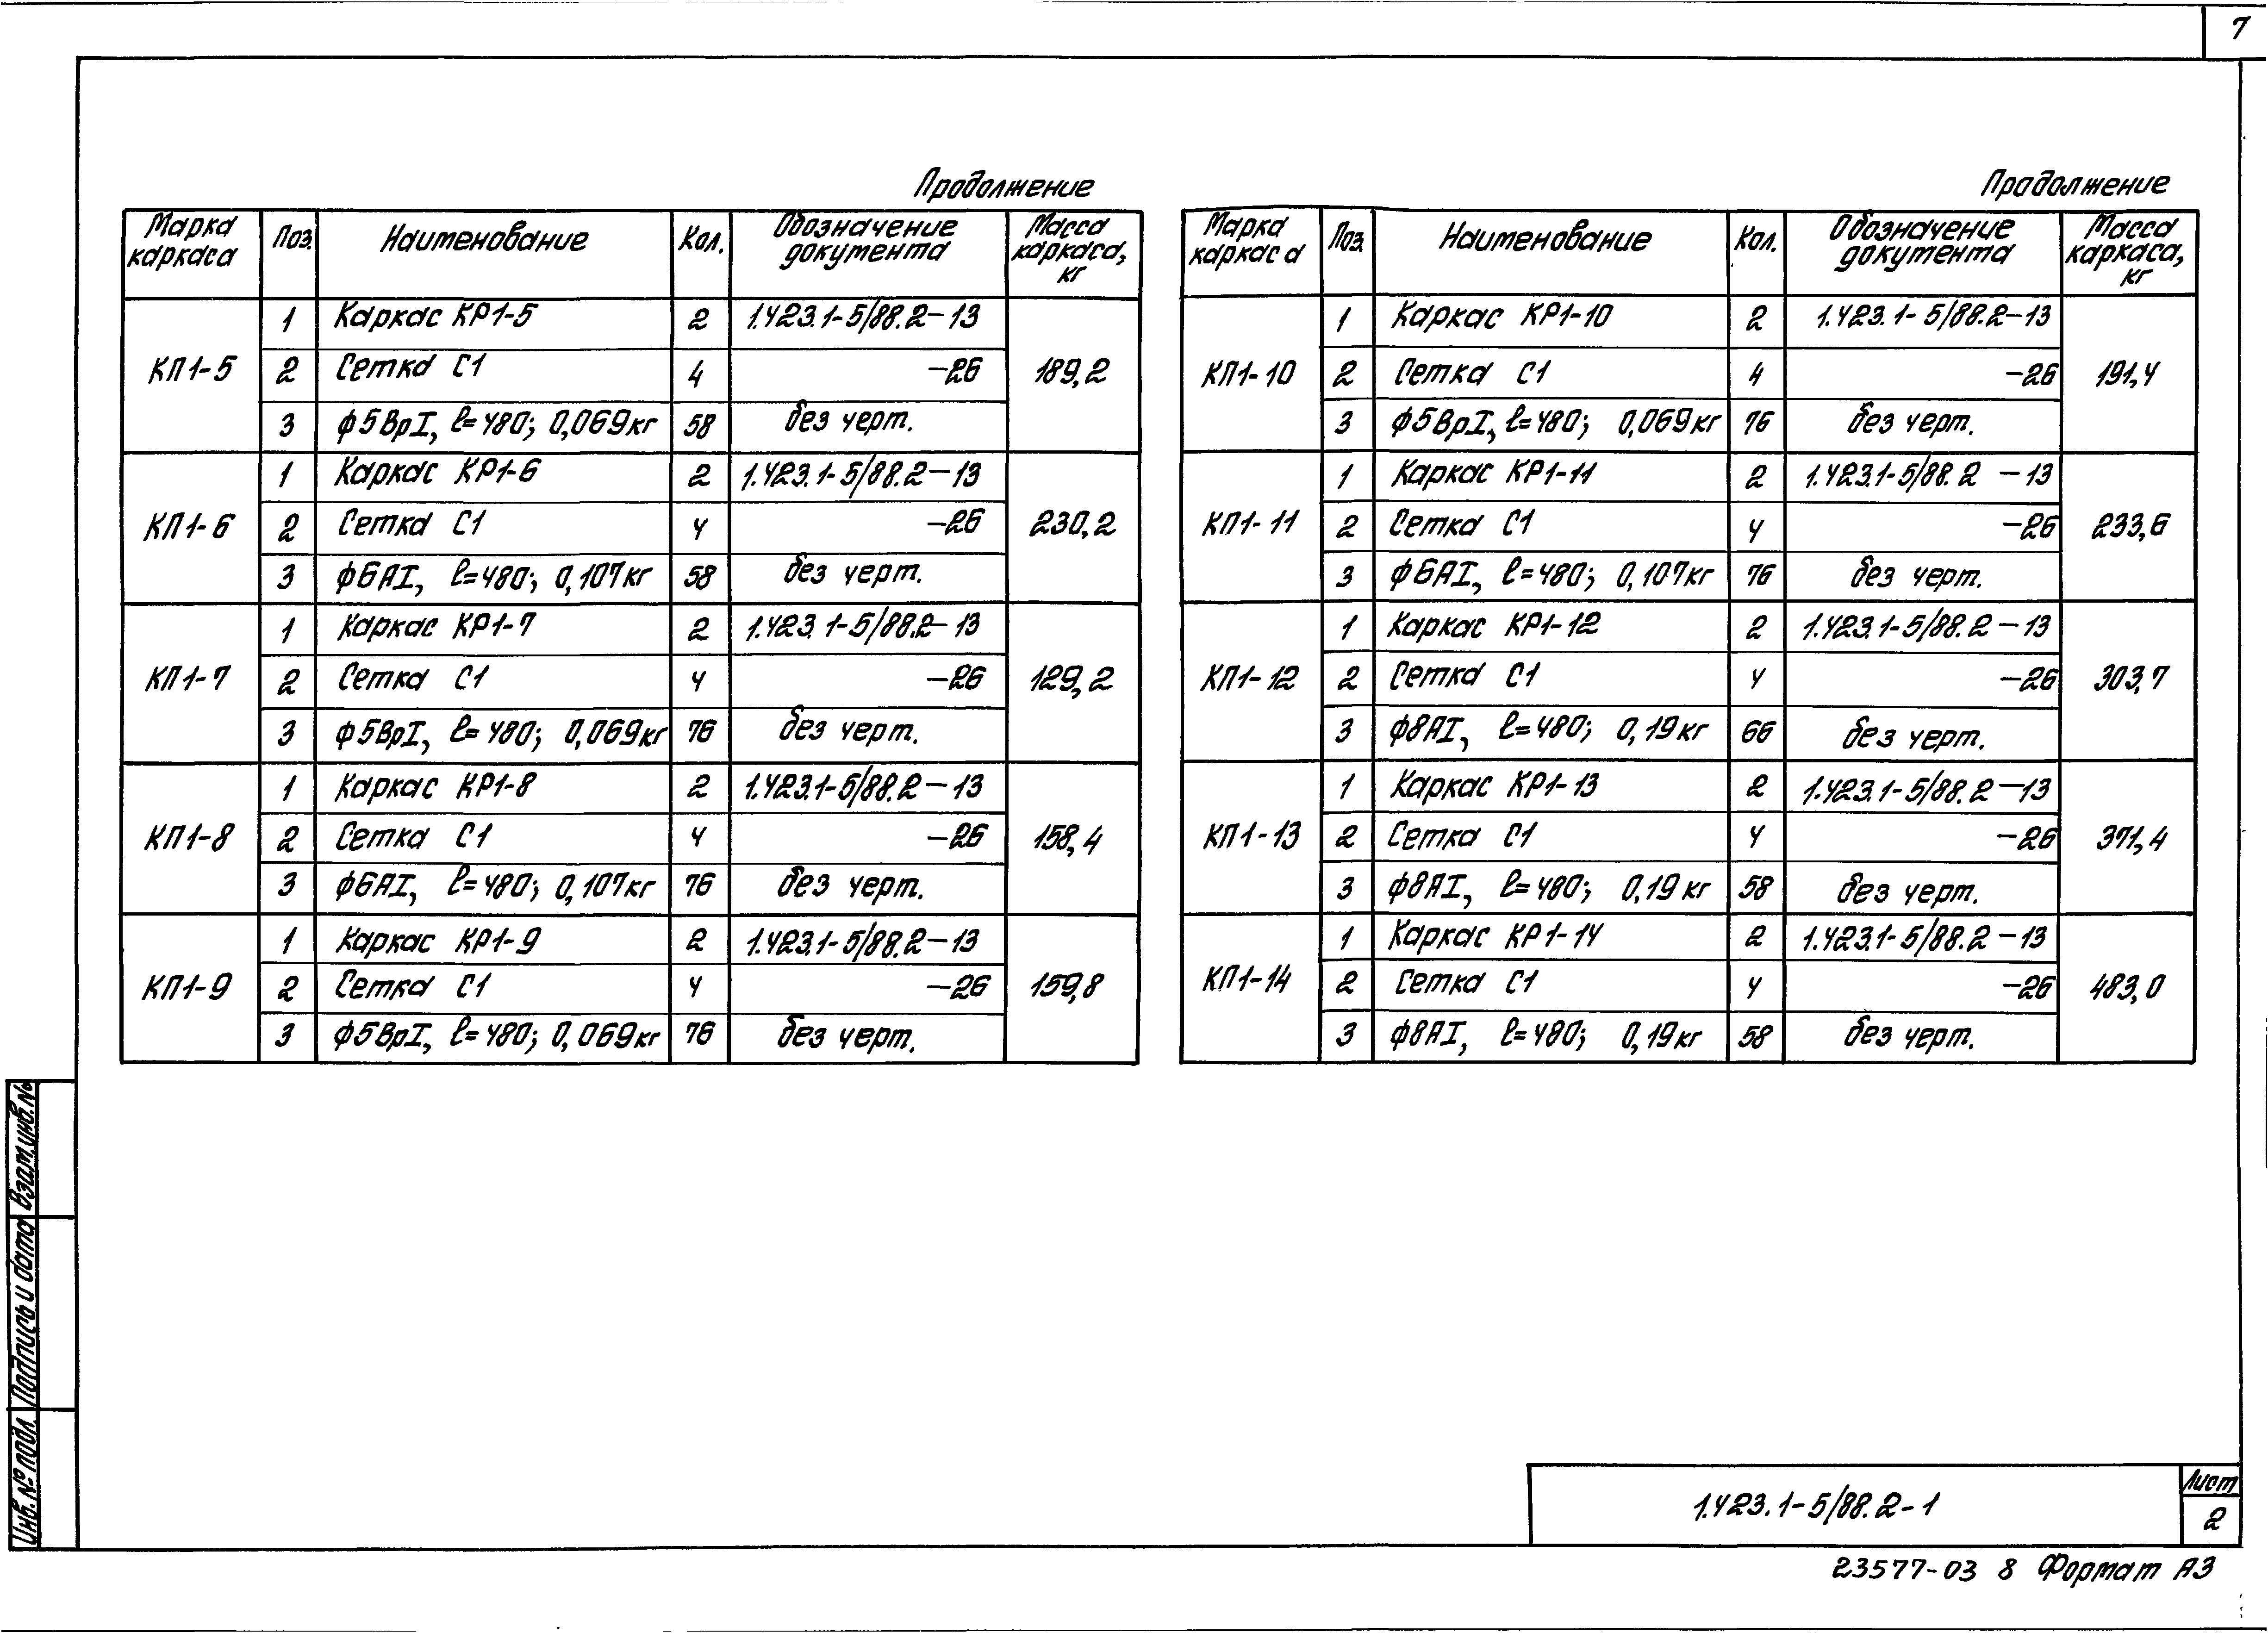 7
Продолжение
Марка каркаса Поз. Наименование Кол. Обозначение документа Масса каркаса, кг
КП1-5 189,2
1 Каркас КР1-5 2 1.423.1-5/88.2-13
2 Сетка С1 4 -26
3 ф5ВрI, ℓ=480; 0,069кг 58 без черт.
КП1-6 230,2
1 Каркас КР1-6 2 1.423.1-5/88.2-13
2 Сетка С1 4 -26
3 ф6АI, ℓ=480; 0,107кг 58 без черт.
КП1-7 129,2
1 Каркас КР1-7 2 1.423.1-5/88.2-13
2 Сетка С1 4 -26
3 ф5ВрI, ℓ=480; 0,069кг 76 без черт.
КП1-8 158,4
1 Каркас КР1-8 2 1.423.1-5/88.2-13
2 Сетка С1 4 -26
3 ф6АI, ℓ=480; 0,107кг 76 без черт.
КП1-9 159,8
1 Каркас КР1-9 2 1.423.1-5/88.2-13
2 Сетка С1 4 -26
3 ф5ВрI, ℓ=480; 0,069кг 76 без черт.
Продолжение
Марка каркаса Поз. Наименование Кол. Обозначение документа Масса каркаса, кг
КП1-10 191,4
1 Каркас КР1-10 2 1.423.1-5/88.2-13
2 Сетка С1 4 -26
3 ф5ВрI, ℓ=480; 0,069кг 76 без черт.
КП1-11 233,6
1 Каркас КР1-11 2 1.423.1-5/88.2-13
2 Сетка С1 4 -26
3 ф6АI, ℓ=480; 0,107кг 76 без черт.
КП1-12 303,7
1 Каркас КР1-12 2 1.423.1-5/88.2-13
2 Сетка С1 4 -26
3 ф8АI, ℓ=480; 0,19кг 66 без черт.
КП1-13 371,4
1 Каркас КР1-13 2 1.423.1-5/88.2-13
2 Сетка С1 4 -26
3 ф8АI, ℓ=480; 0,19кг 58 без черт.
КП1-14 483,0
1 Каркас КР1-14 2 1.423.1-5/88.2-13
2 Сетка С1 4 -26
3 ф8АI, ℓ=480; 0,19кг 58 без черт.
Взам.инв.№
Подпись и дата
Инв.№ подл.
1.423.1-5/88.2-1
Лист
2
23577-03 8 Формат А3